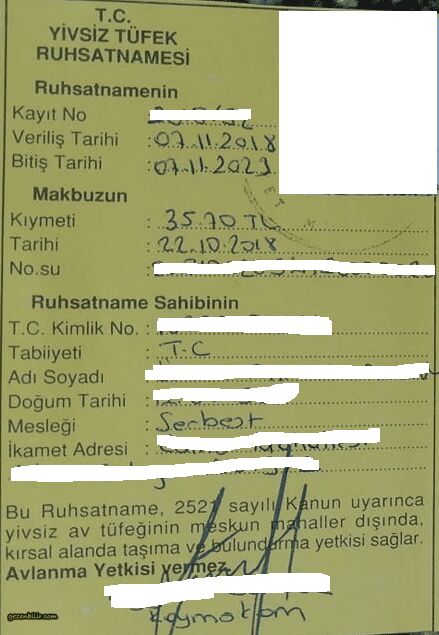 T.C.
YİVSİZ TÜFEK
RUHSATNAMESİ
Ruhsatnamenin
Kayıt No :
Veriliş Tarihi : 07.11.2018
Bitiş Tarihi : 07.11.2023
Makbuzun
Kıymeti : 35.70 TL
Tarihi : 22.10.2018
No.su :
Ruhsatname Sahibinin
T.C. Kimlik No. :
Tabiiyeti : T.C
Adı Soyadı :
Doğum Tarihi :
Mesleği : Serbest
İkamet Adresi :
Bu Ruhsatname, 2521 sayılı Kanun uyarınca
yivsiz av tüfeğinin meskun mahaller dışında,
kırsal alanda taşıma ve bulundurma yetkisi sağlar.
Avlanma Yetkisi vermez
Kaymakam
gezenbilir.com